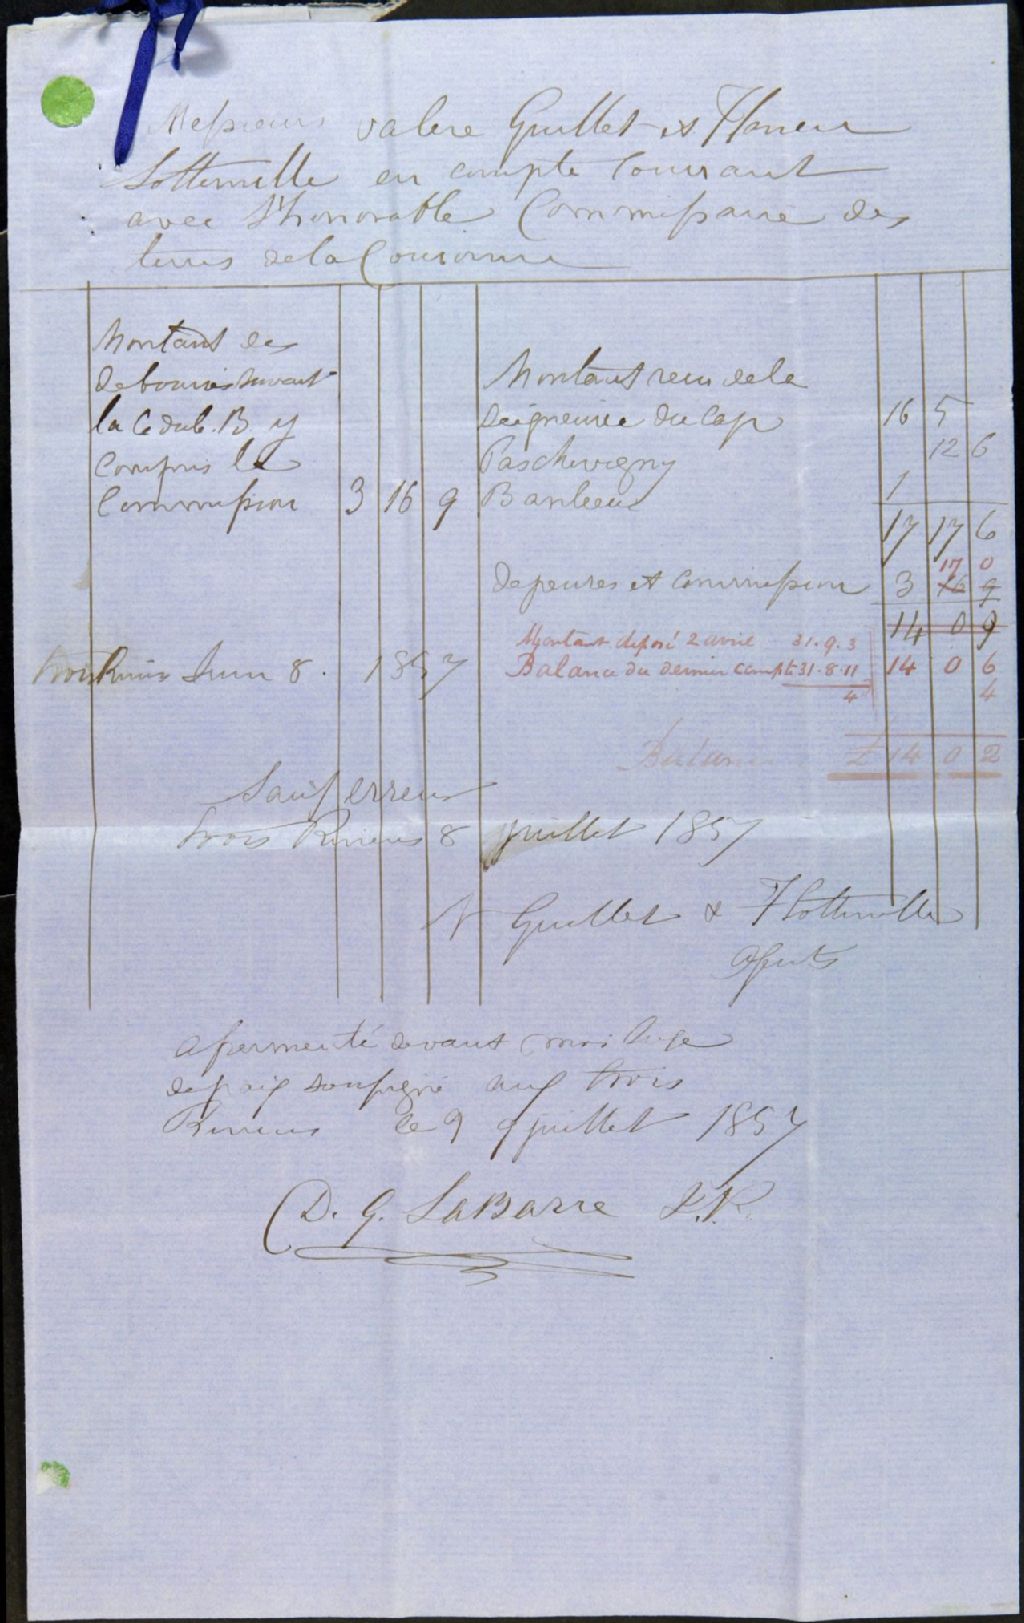 Messieurs Valere Guillet et Flavien
Lottinville en compte Courant
avec l'honorable Commissaire des
terres de la Couronne
Montant des
debourses suivant
la Cedule B. y
Compris la
Commission 3 16 9
Montant recu de la
Seigneurie du Cap 16 5
12 6
Banlieue 1
17 17 6
17 0
depenses et Commission 3 16 9
14 0 9
Montant déposé 2 avril 31.9.3
Balance du dernier compte 31.8.11 14 0 6
4 4
Trois Rivieres 8. 1857
Balance £ 14 0 2
Sauf erreur
trois Rivieres 8 juillet 1857
V Guillet & F Lottinville
Agents
Assermenté devant moi Juge
de paix soussigné aux trois
Rivieres le 9 juillet 1857
D. G. LaBarre J.P.